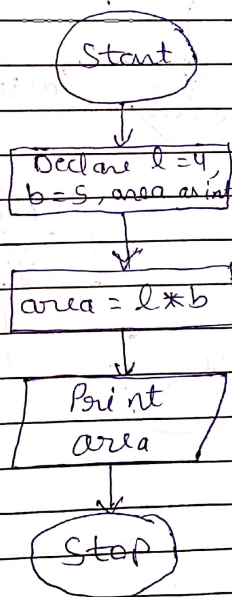 Start
Declare l = 4,
b = 5, area as int
area = l * b
Print
area
Stop